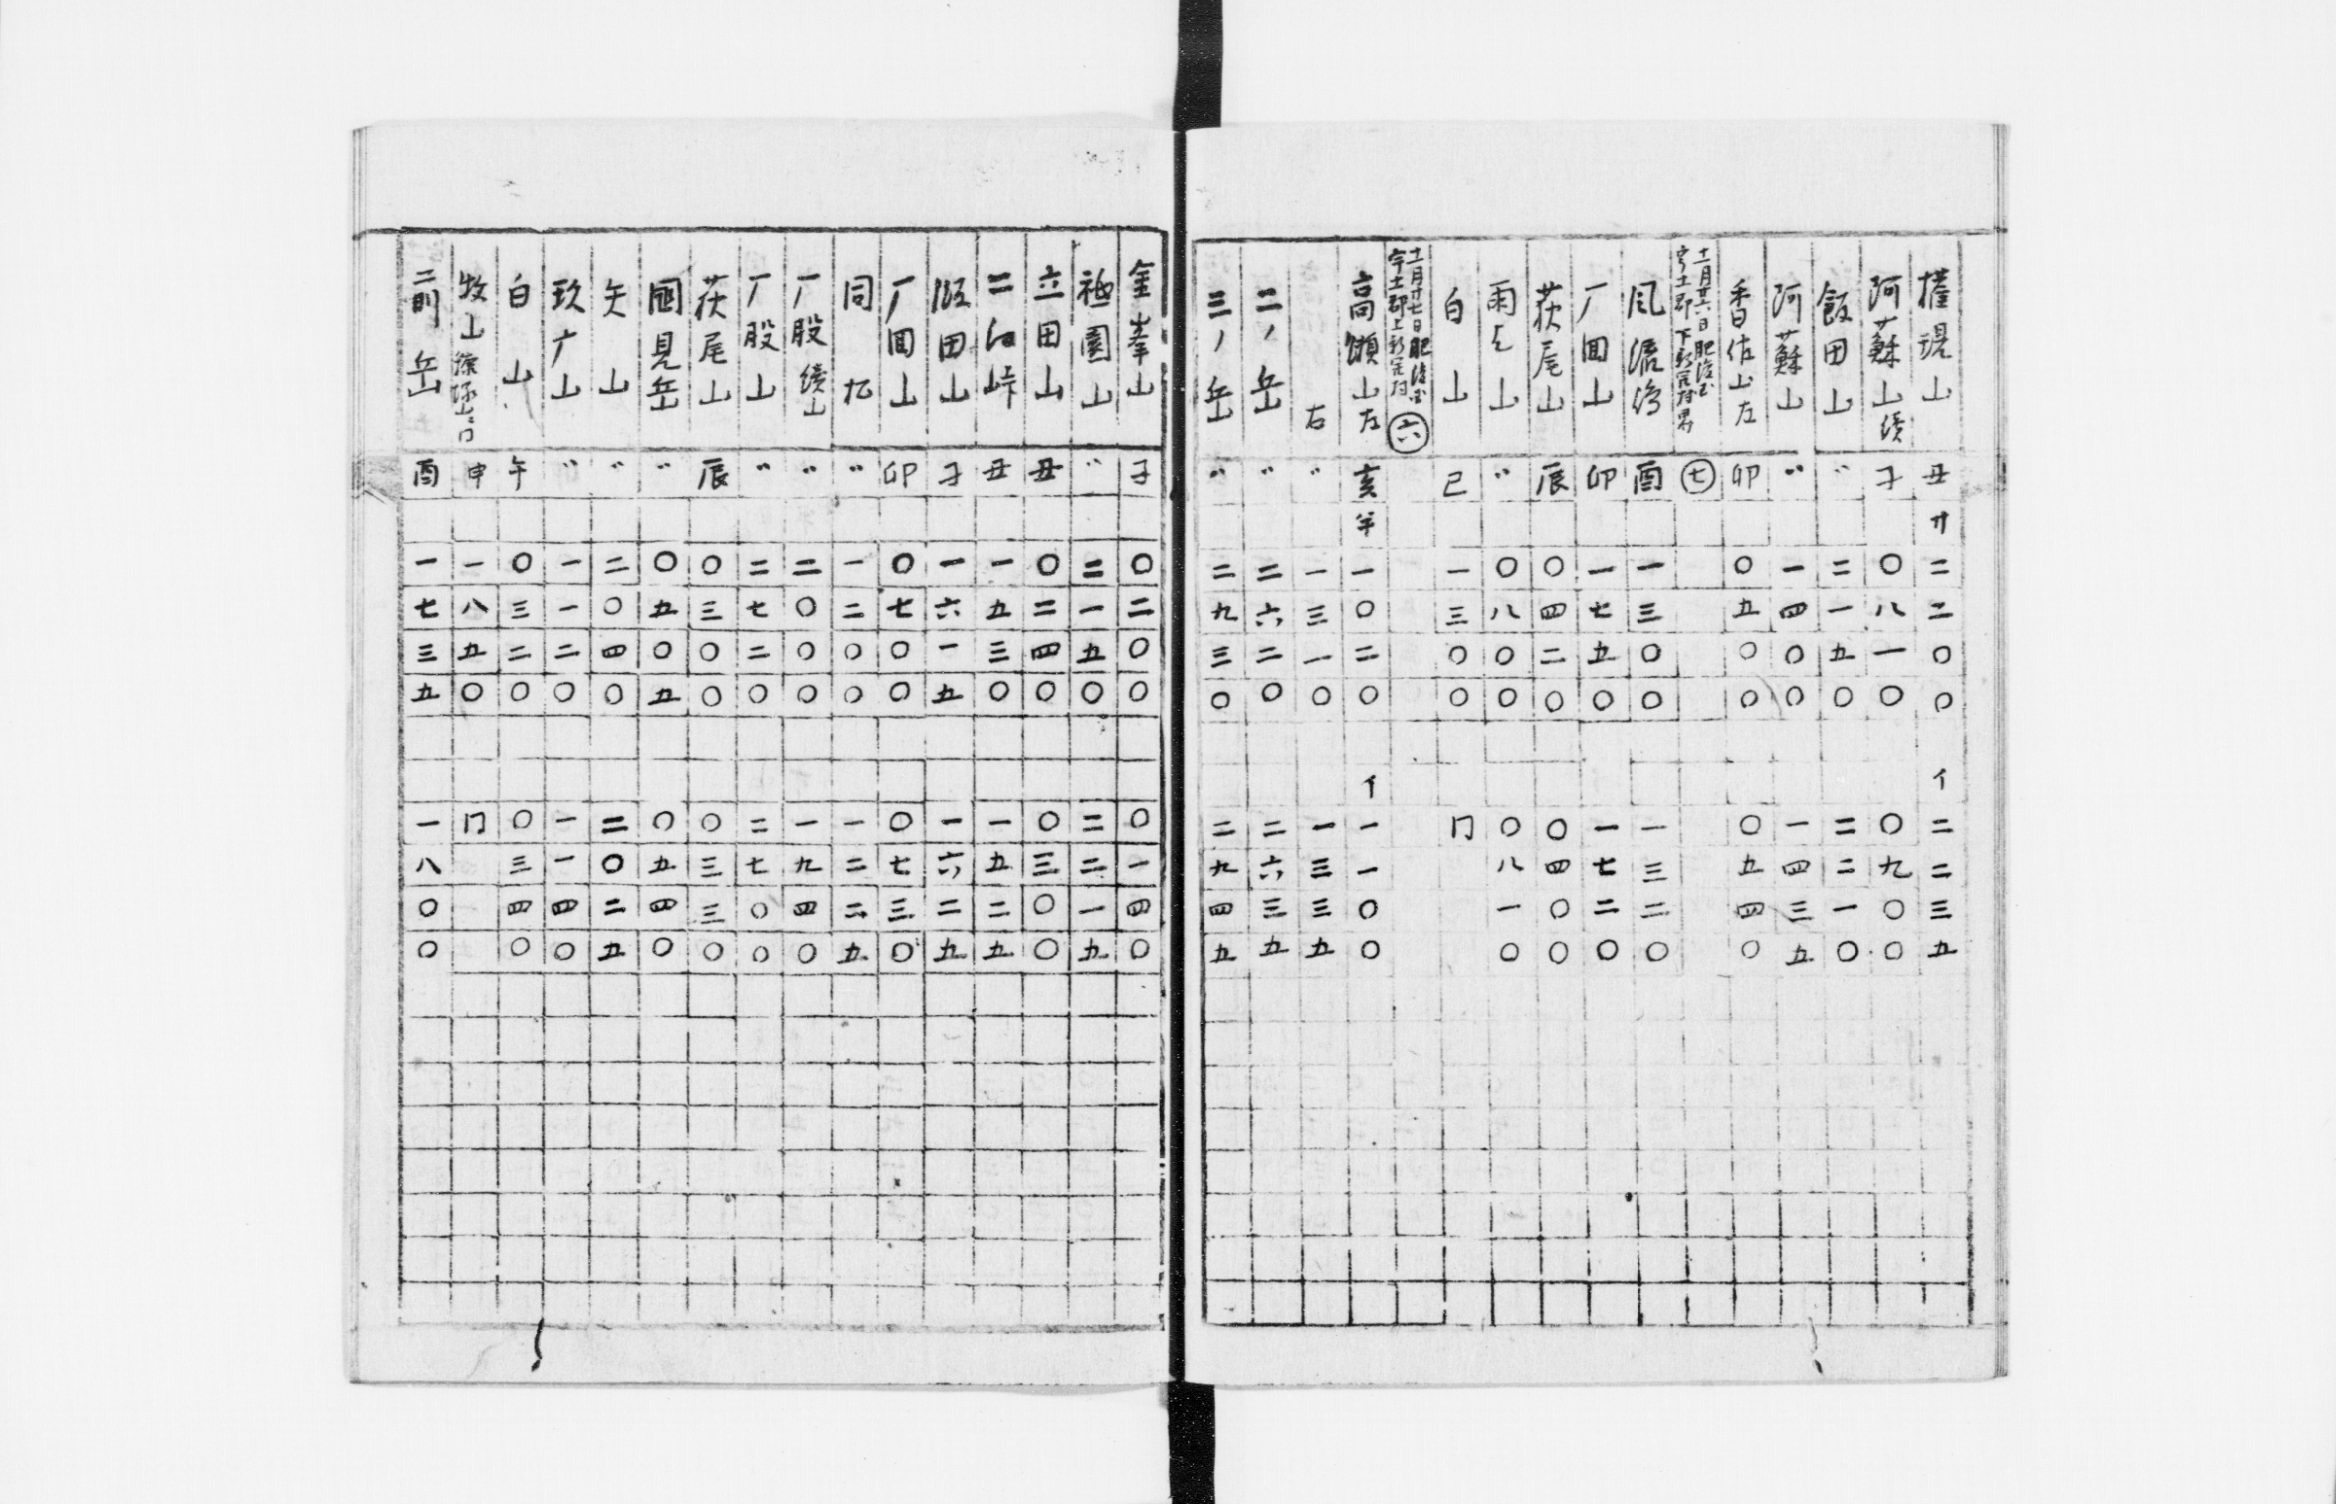 山 丑 廾 二二〇〇 イ 二二三五
阿蘇山 續 子 〇八一〇 〇九〇〇
飯田山 〃 二一五〇 二二一〇
阿蘇山 〃 一四〇〇 一四三五
香佐山左 卯 〇五〇〇 〇五四〇
十一月廿六日肥後国
宇土郡下新開村 七
風流 酉 一三〇〇 一三二〇
厂回山 卯 一七五〇 一七二〇
荻尾山 辰 〇四二〇 〇四〇〇
雨乞山 〃 〇八〇〇 〇八一〇
白山 巳 一三〇〇 冂
十一月廿七日肥後国
宇土郡上新開村 六
高瀬山左 亥 半 一〇二〇 イ 一一〇〇
右 〃 一三一〇 一三三五
二ノ岳 〃 二六二〇 二六三五
三ノ岳 〃 二九三〇 二九四五
金峯山 子 〇二〇〇 〇一四〇
祗園山 〃 二一五〇 二二一五
立田山 丑 〇二四〇 〇三〇〇
二 峠 丑 一五三〇 一五二五
飯田山 子 一六一五 一六二五
厂回山 卯 〇七〇〇 〇七三〇
同 〃 一二〇〇 一二二五
厂股 續山 〃 二〇〇〇 一九四〇
厂股山 〃 二七二〇 二七〇〇
荻尾山 辰 〇三〇〇 〇三三〇
國見岳 〃 〇五〇五 〇五四〇
矢山 〃 二〇四〇 二〇二五
玖广山 〃 一一二〇 一一四〇
白山 午 〇三二〇 〇三四〇
牧山 申 一八五〇 冂
前岳 酉 一七三五 一八〇〇